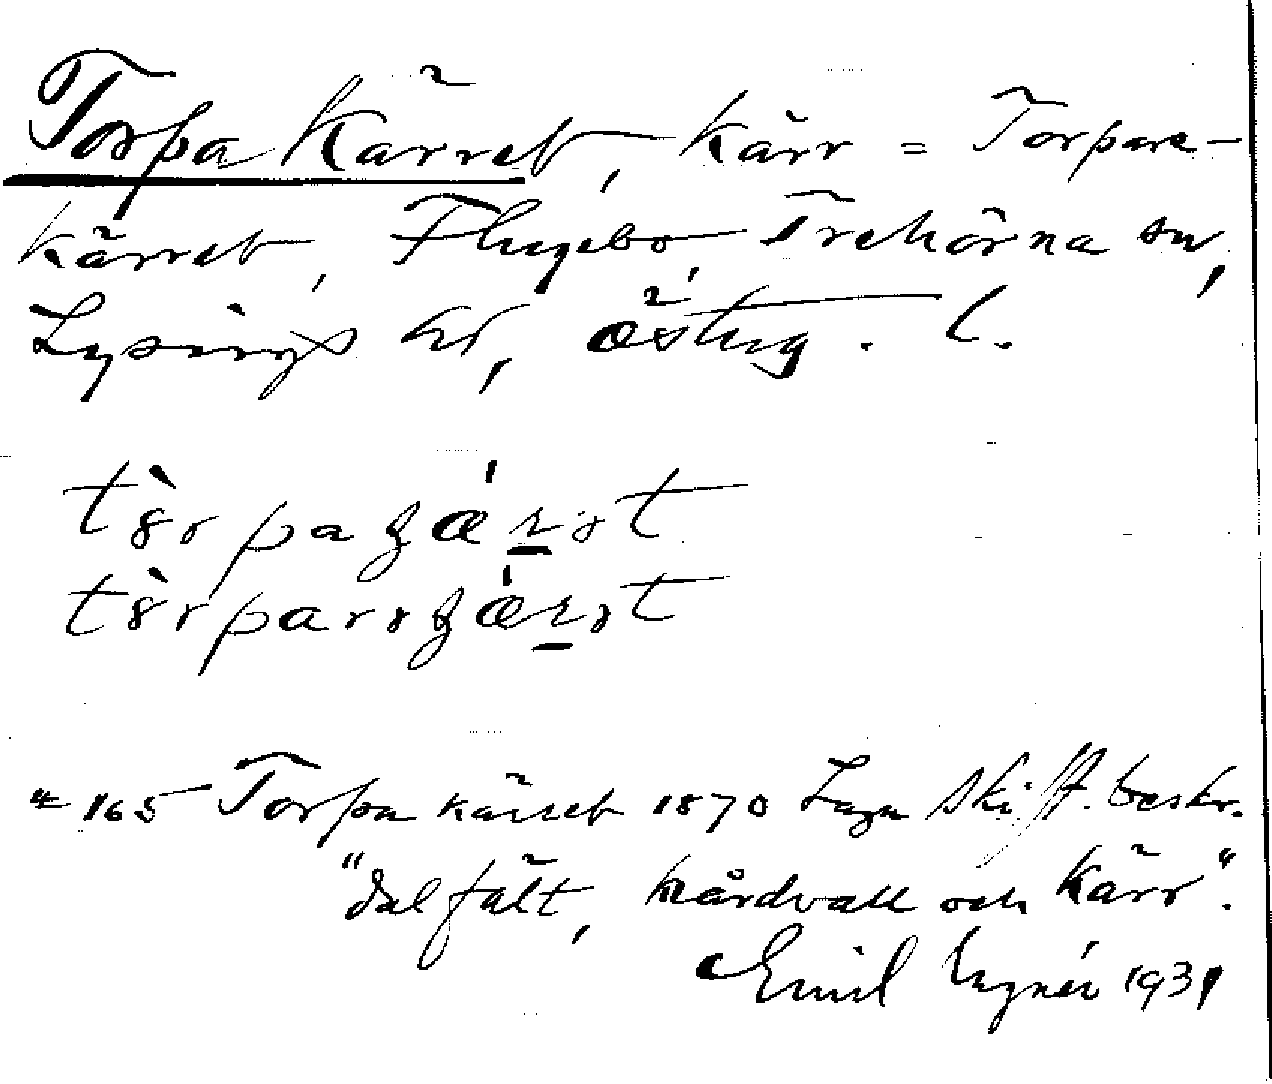 Torpa Kärret, kärr = Torpare-
kärret, Flugebo, Trehörna sn,
Lysings hd, Östug. l.
tòrpa
tòrpar
"165 Torpa kärret 1870 Laga Skift. beskr.
"Dalfält, hårdvall och kärr".
Emil 1931